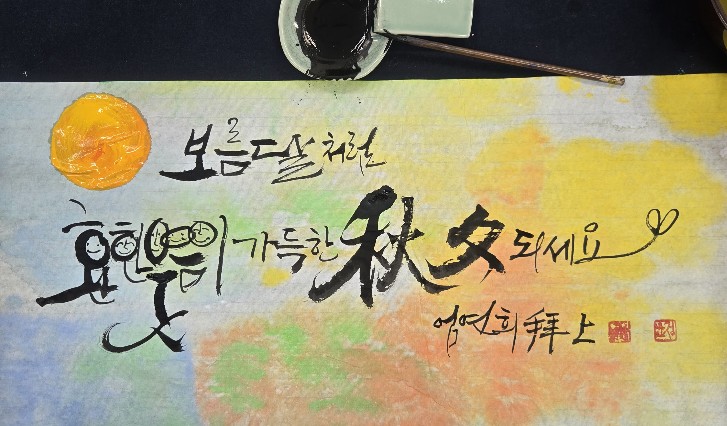 보름달처럼
환한 웃음이 가득한 秋夕 되세요
엄연희 拜上